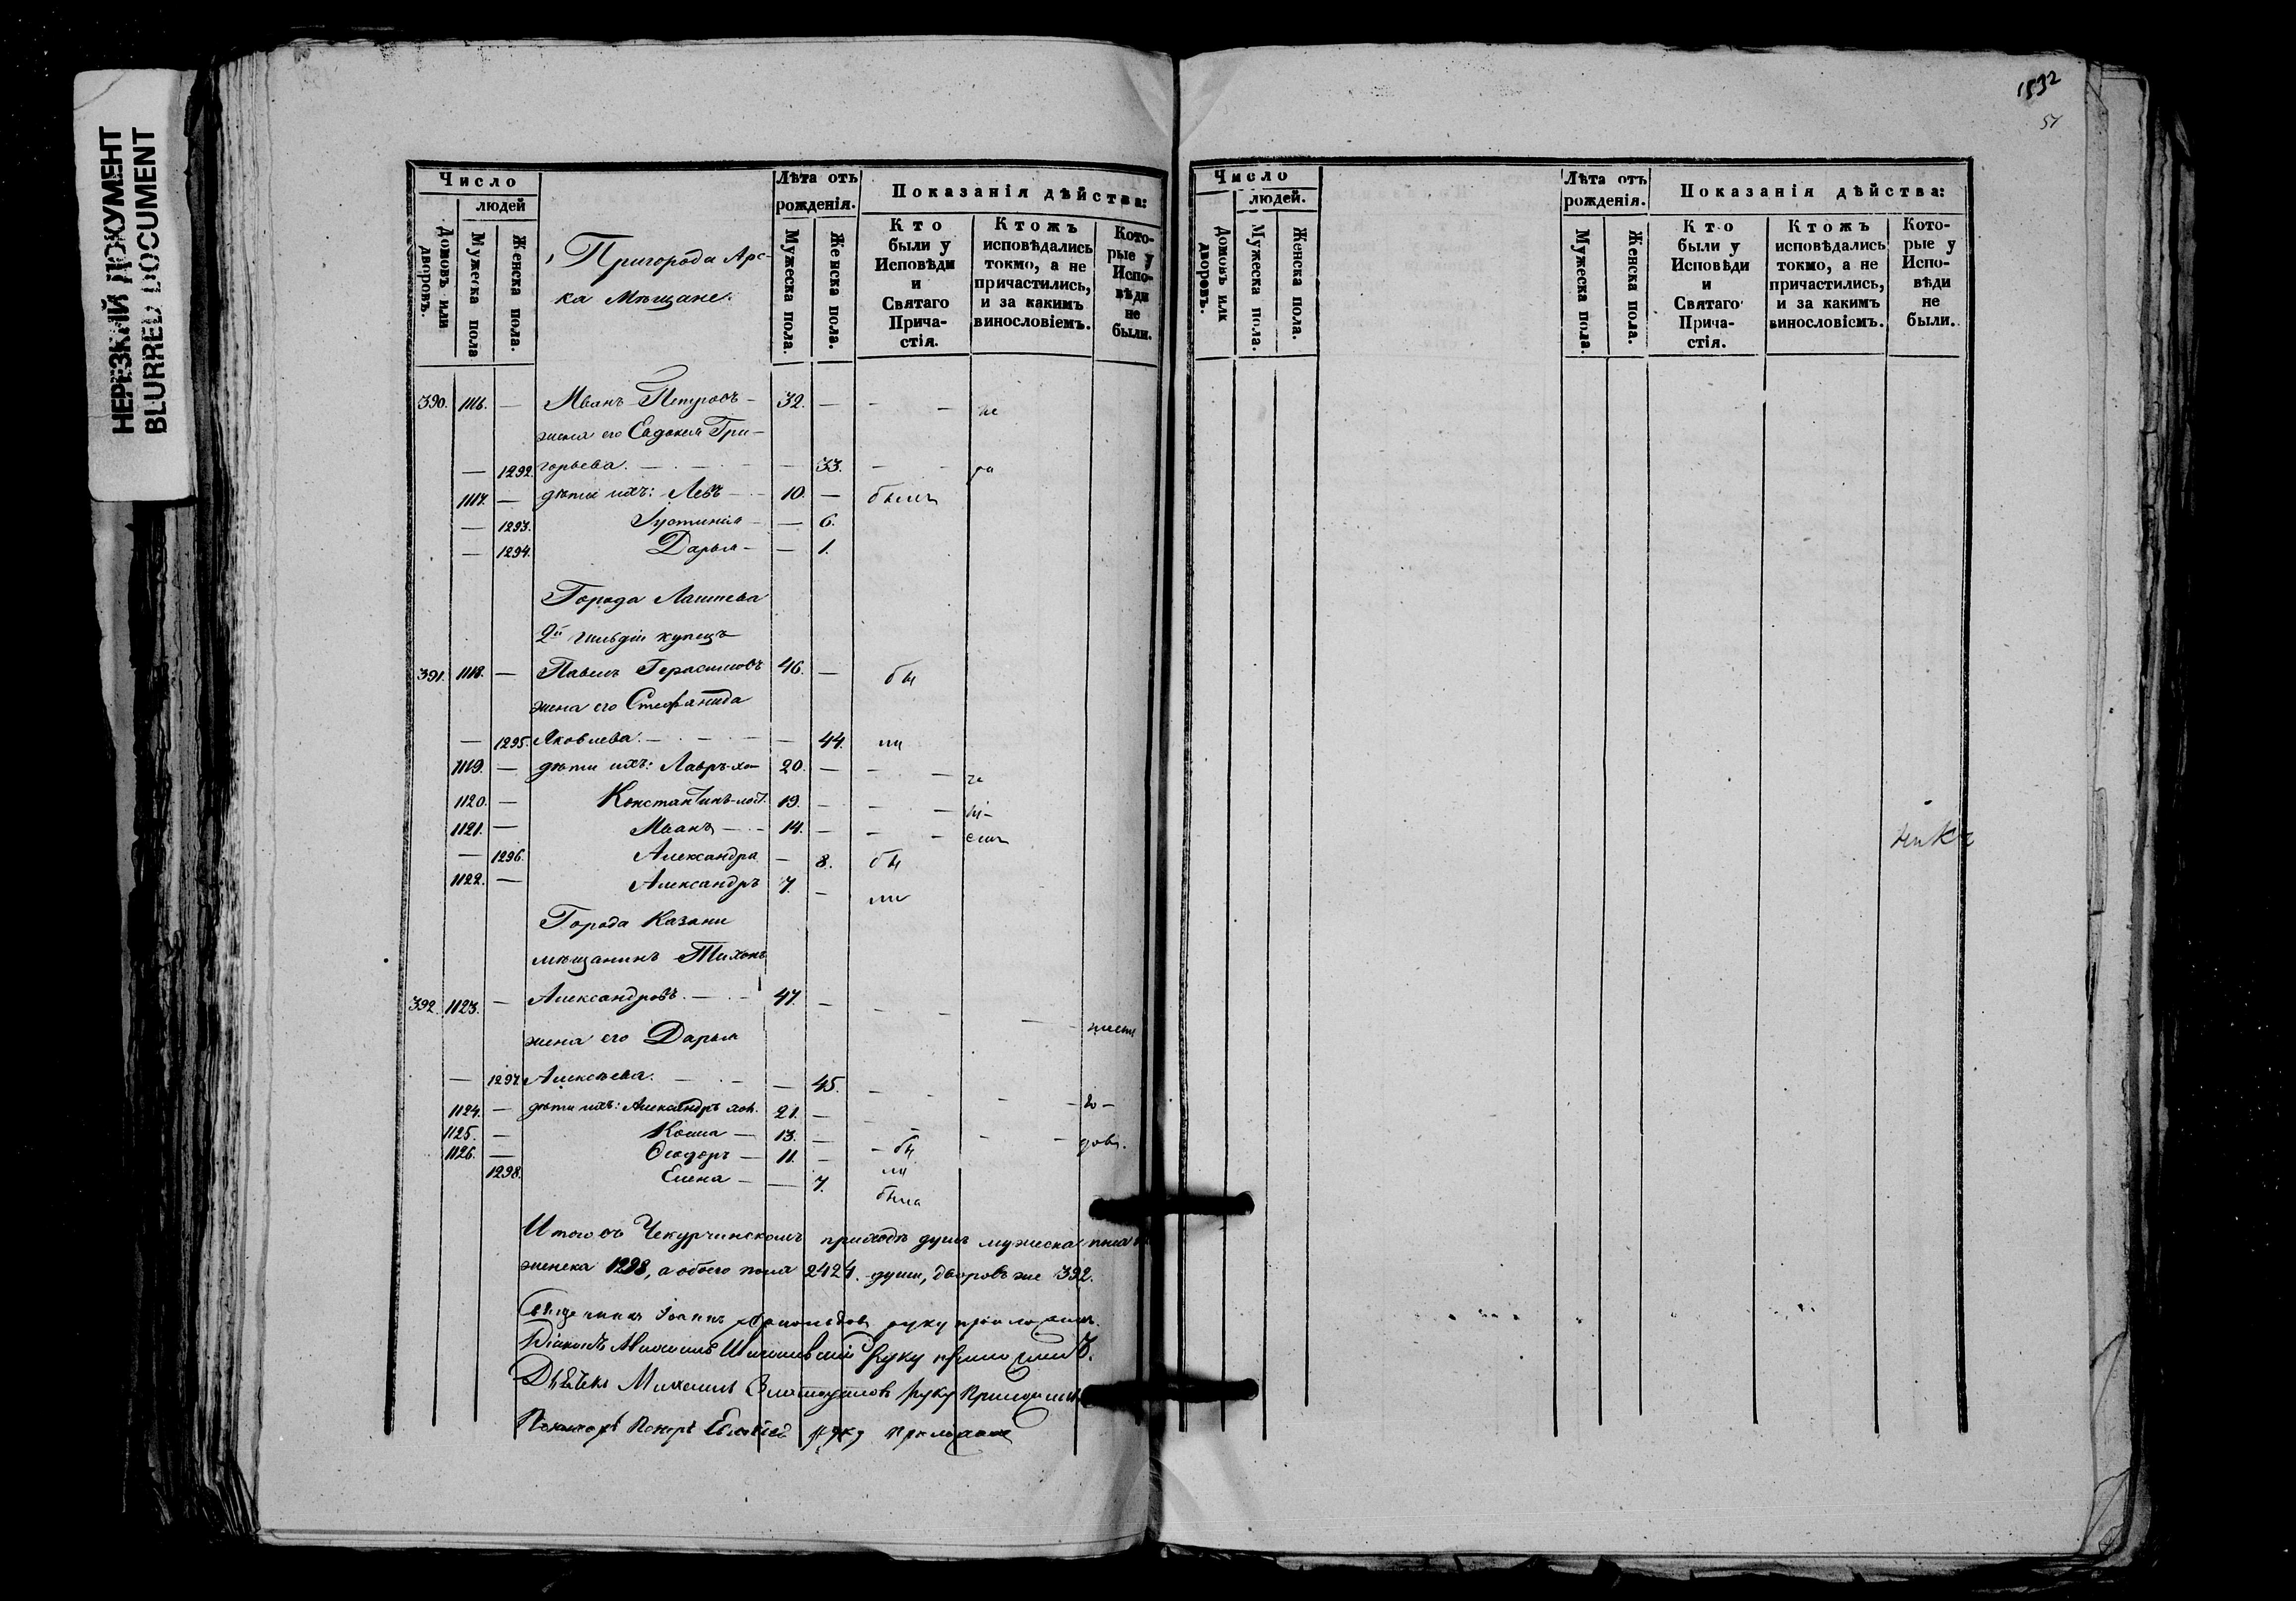 НЕРЕЗКИЙ ДОКУМЕНТ
BLURRED DOCUMENT
1592
51
Число
людей
Домовъ или дворовъ.
Мужеска пола
Женска пола.
Пригорода Арс-
ка Мѣщане.
Лѣта отъ рожденія.
Мужеска пола.
Женска пола.
Показанія дѣйства:
Кто были у Исповѣди и Святаго Прича-стія.
Ктожъ исповѣдались токмо, а не причастились, и за какимъ винословіемъ.
Кото-рые у Испо-вѣди не были.
390. 1116. — Иванъ Петровъ — 32. — — — не
жена его Евдокея Гри-
— 1292. горьева. — — 33. — —
1117. — дѣти ихъ: Левъ — 10. — былъ
— 1293. Іустинія — — 6.
— 1294. Дарья — — 1.
Города Лаишева
2й гильдіи купецъ
391. 1118. — Павелъ Герасимовъ 46. — бы
жена его Стефанида
— 1295. Яковлева. — — 44. ли
1119. — дѣти ихъ: Лавръ-хо- 20. — — —
1120. — Константинъ-хол. 19. — — —
1121. — Иванъ — 14. — — —
— 1296. Александра — 8. бы
1122. — Александръ 7. — ли
Города Казани
мѣщанинъ Тихонъ
392. 1123. — Александровъ. — 47. — — — —
жена его Дарья
— 1297. Алексѣева. — — 45. — — —
1124. — дѣти ихъ: Александръ хол. 21. — — —
1125. — Косма — 13. — бы
1126. — Ѳеодоръ — 11. — ли
1298. Елена — — 7. была
Итого въ Чекурчинскомъ приходѣ душъ мужеска пола
женска 1298, а обоего пола 2424. души, дворовъ же 392.
Священникъ Іоаннъ руку приложилъ.
Діаконъ руку приложилъ.
Дьячекъ Михаилъ Златоустовъ руку приложилъ
Пономарь Петръ руку приложилъ
Число
людей.
Домовъ или дворовъ.
Мужеска пола.
Женска пола.
Лѣта отъ рожденія.
Мужеска пола.
Женска пола.
Показанія дѣйства:
Кто были у Исповѣди и Святаго Прича-стія.
Ктожъ исповѣдались токмо, а не причастились, и за какимъ винословіемъ.
Кото-рые у Испо-вѣди не были.